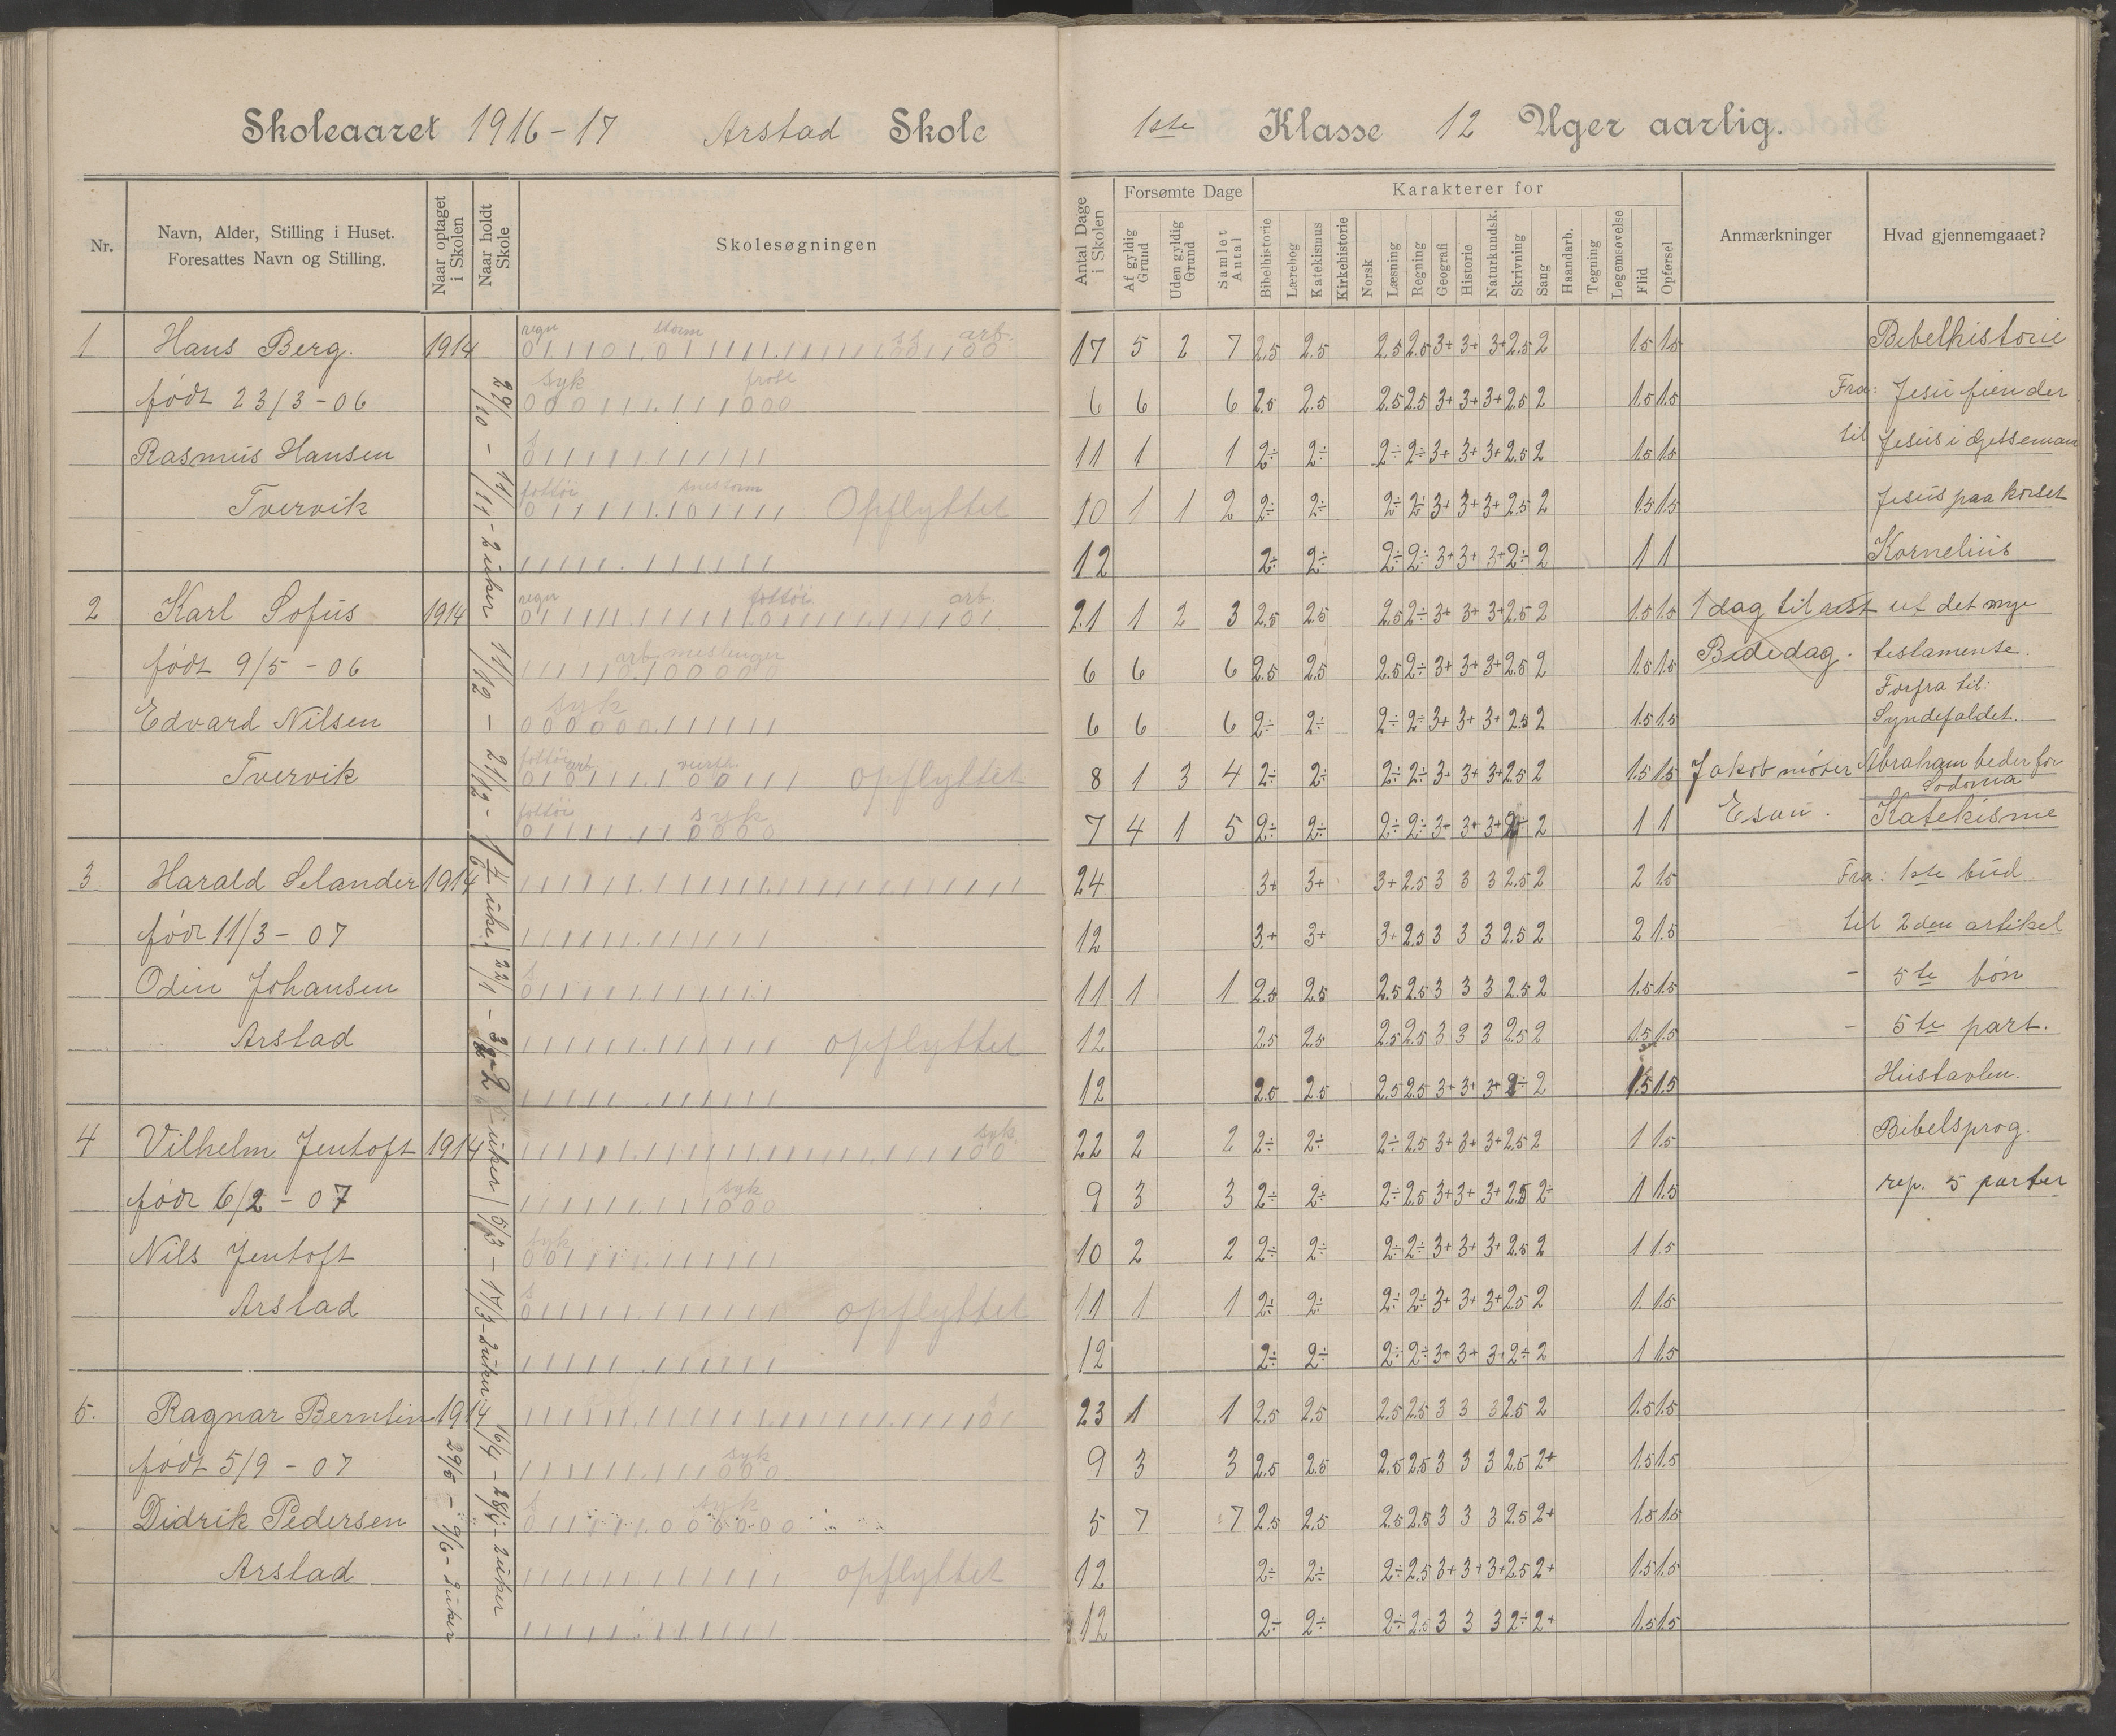 Skoleaaret 1916-17 Arstad Skole 1ste Klasse 12 Uger aarlig.
Nr. Navn, Alder, Stilling i Huset. Foresattes Navn og Stilling. Naar optaget i Skolen Naar holdt Skole Skolesøgningen Antal Dage i Skolen Forsømte Dage Af gyldig Grund Uden gyldig Grund Samlet Antal Karakterer for Bibelhistorie Lærebog Katekismus Kirkehistorie Norsk Læsning Regning Geografi Historie Naturkundsk. Skrivning Sang Haandarb. Tegning Legemsøvelse Flid Opførsel Anmærkninger Hvad gjennemgaaet?
regn storm arb.
1 Hans Berg. 1914 17 5 2 7 2.5 2.5 2.5 2.5 3+ 3+ 3+ 2.5 2 1.5 1.5 Bibelhistorie
syk frost
født 23/3-06 6 6 6 2.5 2.5 2.5 2.5 3+ 3+ 3+ 2.5 2 1.5 1.5 Fra: Jesu fiender
Rasmus Hansen 11 1 1 2÷ 2÷ 2÷ 2÷ 3+ 3+ 3+ 2.5 2 1.5 1.5 til Jesus i Getsemane
fottøi snestorm
Tvervik Opflyttet 10 1 1 2 2÷ 2÷ 2÷ 2÷ 3+ 3+ 3+ 2.5 2 1.5 1.5 Jesus paa korset
12 2÷ 2÷ 2÷ 2÷ 3+ 3+ 3+ 2÷ 2 1 1 Kornelius
regn fottøi arb.
2 Karl Sofus 1914 21 1 2 3 2.5 2.5 2.5 2÷ 3+ 3+ 3+ 2.5 2 1.5 1.5 1 dag til rest ut det nye
arb meslenger
født 9/5-06 6 6 6 2.5 2.5 2.5 2÷ 3+ 3+ 3+ 2.5 2 1.5 1.5 Bededag. testamente.
Forfra til:
syk
Edvard Nilsen 6 6 6 2÷ 2÷ 2÷ 2÷ 3+ 3+ 3+ 2.5 2 1.5 1.5 Syndefaldet.
fottøi arb.
Tvervik opflyttet 8 1 3 4 2÷ 2÷ 2÷ 2÷ 3+ 3+ 3+ 2.5 2 1.5 1.5 Jakob møter Abraham beder for Sodoma
fottøi syk
7 4 1 5 2÷ 2÷ 2÷ 2÷ 3+ 3+ 3+ 2÷ 2 1 1 Esau. Katekisme
3 Harald Selander 1914 24 3+ 3+ 3+ 2.5 3 3 3 2.5 2 2 1.5 Fra: 1ste bud
født 11/3-07 12 3+ 3+ 3+ 2.5 3 3 3 2.5 2 2 1.5 til 2den artikel
Odin Johansen 11 1 1 2.5 2.5 2.5 2.5 3 3 3 2.5 2 1.5 1.5 - 5te bøn
Arstad opflyttet 12 2.5 2.5 2.5 2.5 3 3 3 2.5 2 1.5 1.5 - 5te part.
12 2.5 2.5 2.5 2.5 3+ 3+ 3+ 2÷ 2 1.5 1.5 Hustavlen.
syk
4 Vilhelm Jentoft 1914 22 2 2 2÷ 2÷ 2÷ 2.5 3+ 3+ 3+ 2.5 2 1 1.5 Bibelsprog.
syk
født 6/2-07 9 3 3 2÷ 2÷ 2÷ 2.5 3+ 3+ 3+ 2.5 2÷ 1 1.5 rep. 5 parter
syk
Nils Jentoft 10 2 2 2÷ 2÷ 2÷ 2÷ 3+ 3+ 3+ 2.5 2 1 1.5
Arstad opflyttet 11 1 1 2÷ 2÷ 2÷ 2÷ 3+ 3+ 3+ 2.5 2 1 1.5
12 2÷ 2÷ 2÷ 2÷ 3+ 3+ 3+ 2÷ 2 1 1.5
5. Ragnar Berntin 1914 23 1 1 2.5 2.5 2.5 2.5 3 3 3 2.5 2 1.5 1.5
syk
født 5/9-07 9 3 3 2.5 2.5 2.5 2.5 3 3 3 2.5 2+ 1.5 1.5
syk
Didrik Pedersen 5 7 7 2.5 2.5 2.5 2.5 3 3 3 2.5 2+ 1.5 1.5
Arstad opflyttet 12 2÷ 2÷ 2÷ 2.5 3+ 3+ 3+ 2.5 2+ 1.5 1.5
12 2÷ 2÷ 2÷ 2.5 3 3 3 2÷ 2+ 1.5 1.5
29/10 - 11/11 - 2 uker 11/12 - 21/12 - uke. 22/1 - 3/2 - 2 uker 5/3 - 17/3 - 2 uker. 16/4 - 28/4 - 2 uker
29/5 - 9/6 - 2 uker